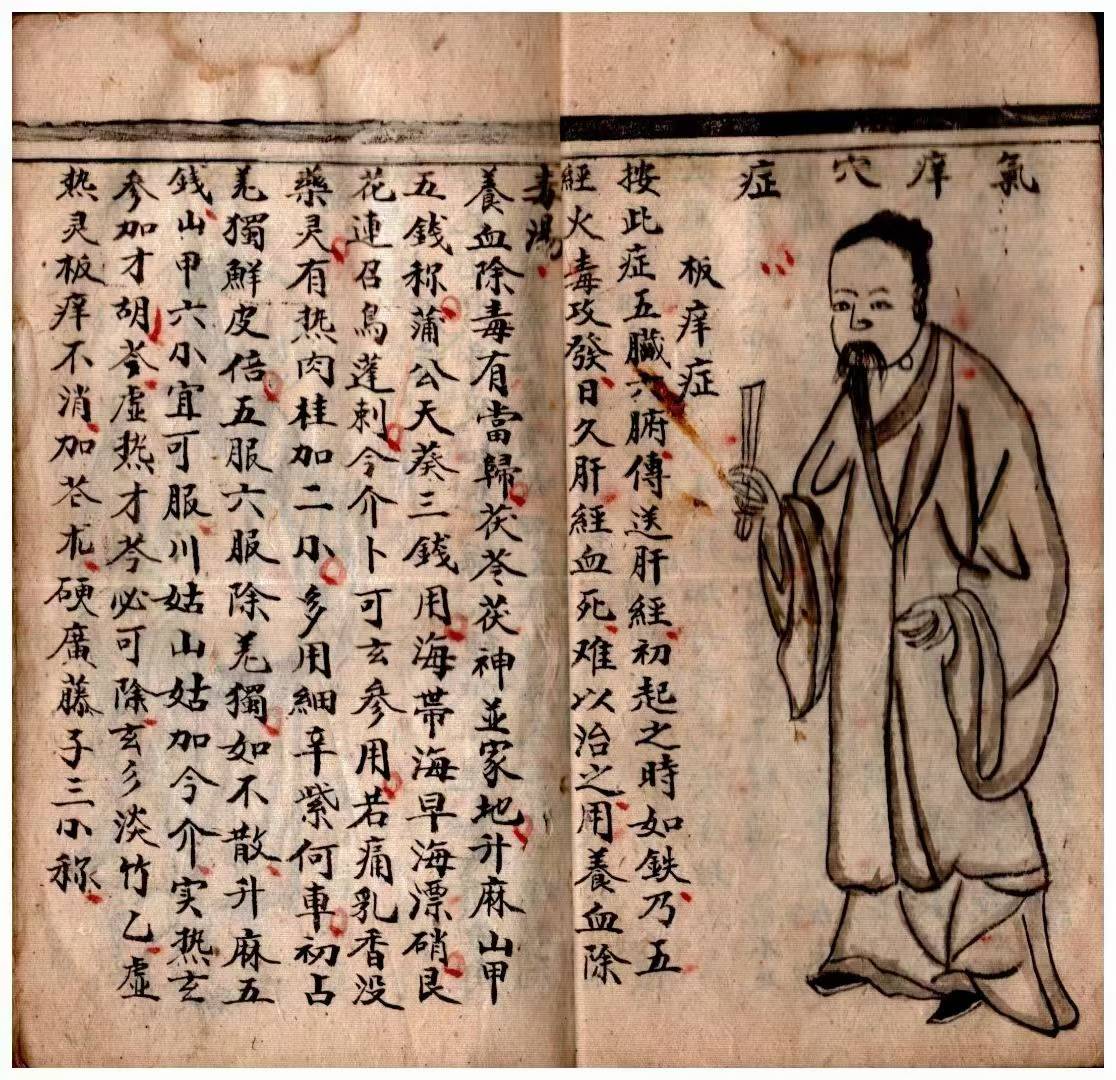 氣痒穴症
板痒症
按此症五臟六腑傳送肝經初起之時如鉄乃五
經火毒攻發日久肝經血死难以治之用養血除
毒湯
養血除毒有當歸茯苓茯神並家地升麻山甲
五錢称蒲公天葵三錢用海帶海早海漂硝艮
花連召鳥蓬刺令介卜可玄參用若痛乳香没
藥灵有热肉桂加二小多用細辛紫何車初占
羌獨鮮皮倍五服六服除羌獨如不散升麻五
錢山甲六小宜可服川姑山姑加令介实热玄
參加才胡苓虛热才芩必可除玄彡淡竹乙虛
热灵板痒不消加苍朮硬廣藤子三小称